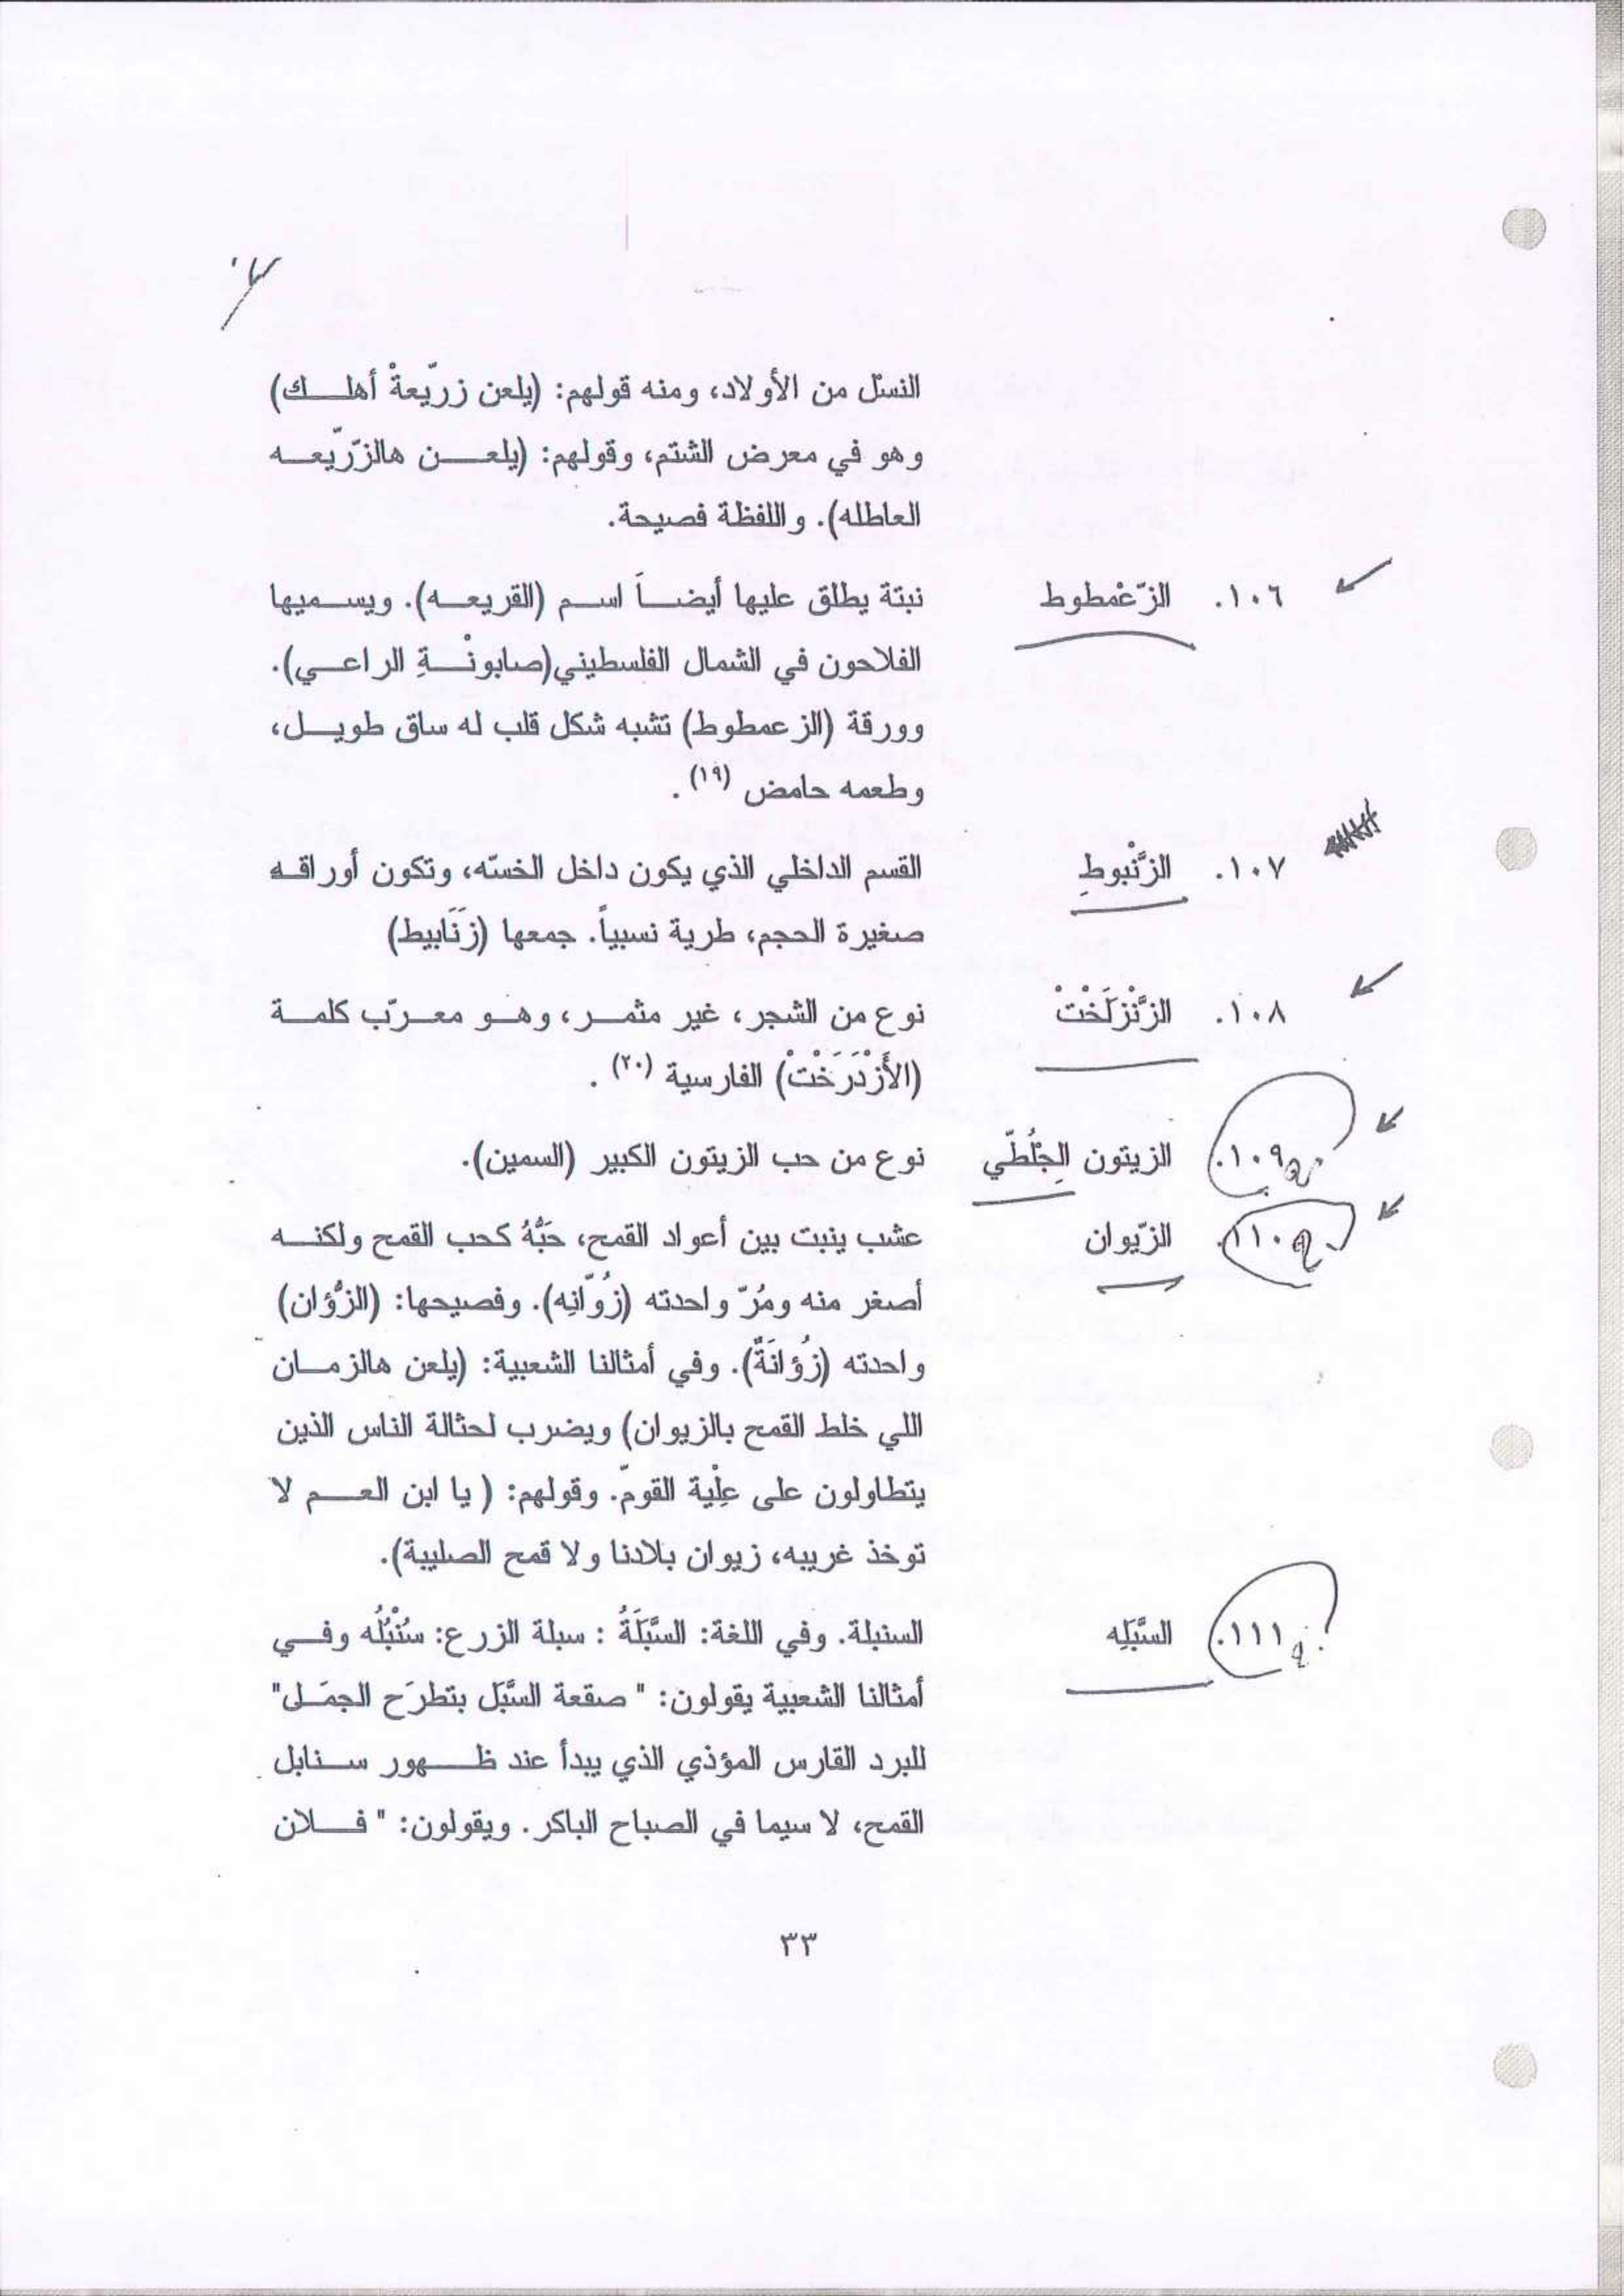 النسْل من الأولاد، ومنه قولهم: (يلعن زرّيعةْ أهلـك)
وهو في معرض الشتم، وقولهم: (يلعـن هالزّرّيعـه
العاطله). واللفظة فصيحة.
١٠٦. الزّعْمطوط نبتة يطلق عليها أيضـاً اسـم (القريعـه). ويسـميها
الفلاحون في الشمال الفلسطيني(صابونْـةِ الراعـي).
وورقة (الزعمطوط) تشبه شكل قلب له ساق طويـل،
وطعمه حامض (١٩) .
١٠٧. الزَّنْبوطِ القسم الداخلي الذي يكون داخل الخسّه، وتكون أوراقـه
صغيرة الحجم، طرية نسبياً. جمعها (زَنَابيط)
١٠٨. الزَّنْزلَخْتْ نوع من الشجر، غير مثمـر، وهـو معـرّب كلمـة
(الأَزْدَرَخْتْ) الفارسية (٢٠) .
١٠٩. الزيتون الجِلُطّي نوع من حب الزيتون الكبير (السمين).
١١٠. الزّيوان عشب ينبت بين أعواد القمح، حَبَّهُ كحب القمح ولكنـه
أصغر منه ومُرّ واحدته (زُوّانِه). وفصيحها: (الزُّؤان)
واحدته (زُؤانَةٌ). وفي أمثالنا الشعبية: (يلعن هالزمـان
اللي خلط القمح بالزيوان) ويضرب لحثالة الناس الذين
يتطاولون على عِلْية القومّ. وقولهم: ( يا ابن العـم لا
توخذ غريبه، زيوان بلادنا ولا قمح الصليبة).
١١١. السَّبَلِه السنبلة. وفي اللغة: السَّبَلَةُ : سبلة الزرع: سُنْبُلُه وفـي
أمثالنا الشعبية يقولون: " صقعة السَّبَل بتطرَح الجمَـل"
للبرد القارس المؤذي الذي يبدأ عند ظـهور سـنابل
القمح، لا سيما في الصباح الباكر. ويقولون: " فـلان
٣٣